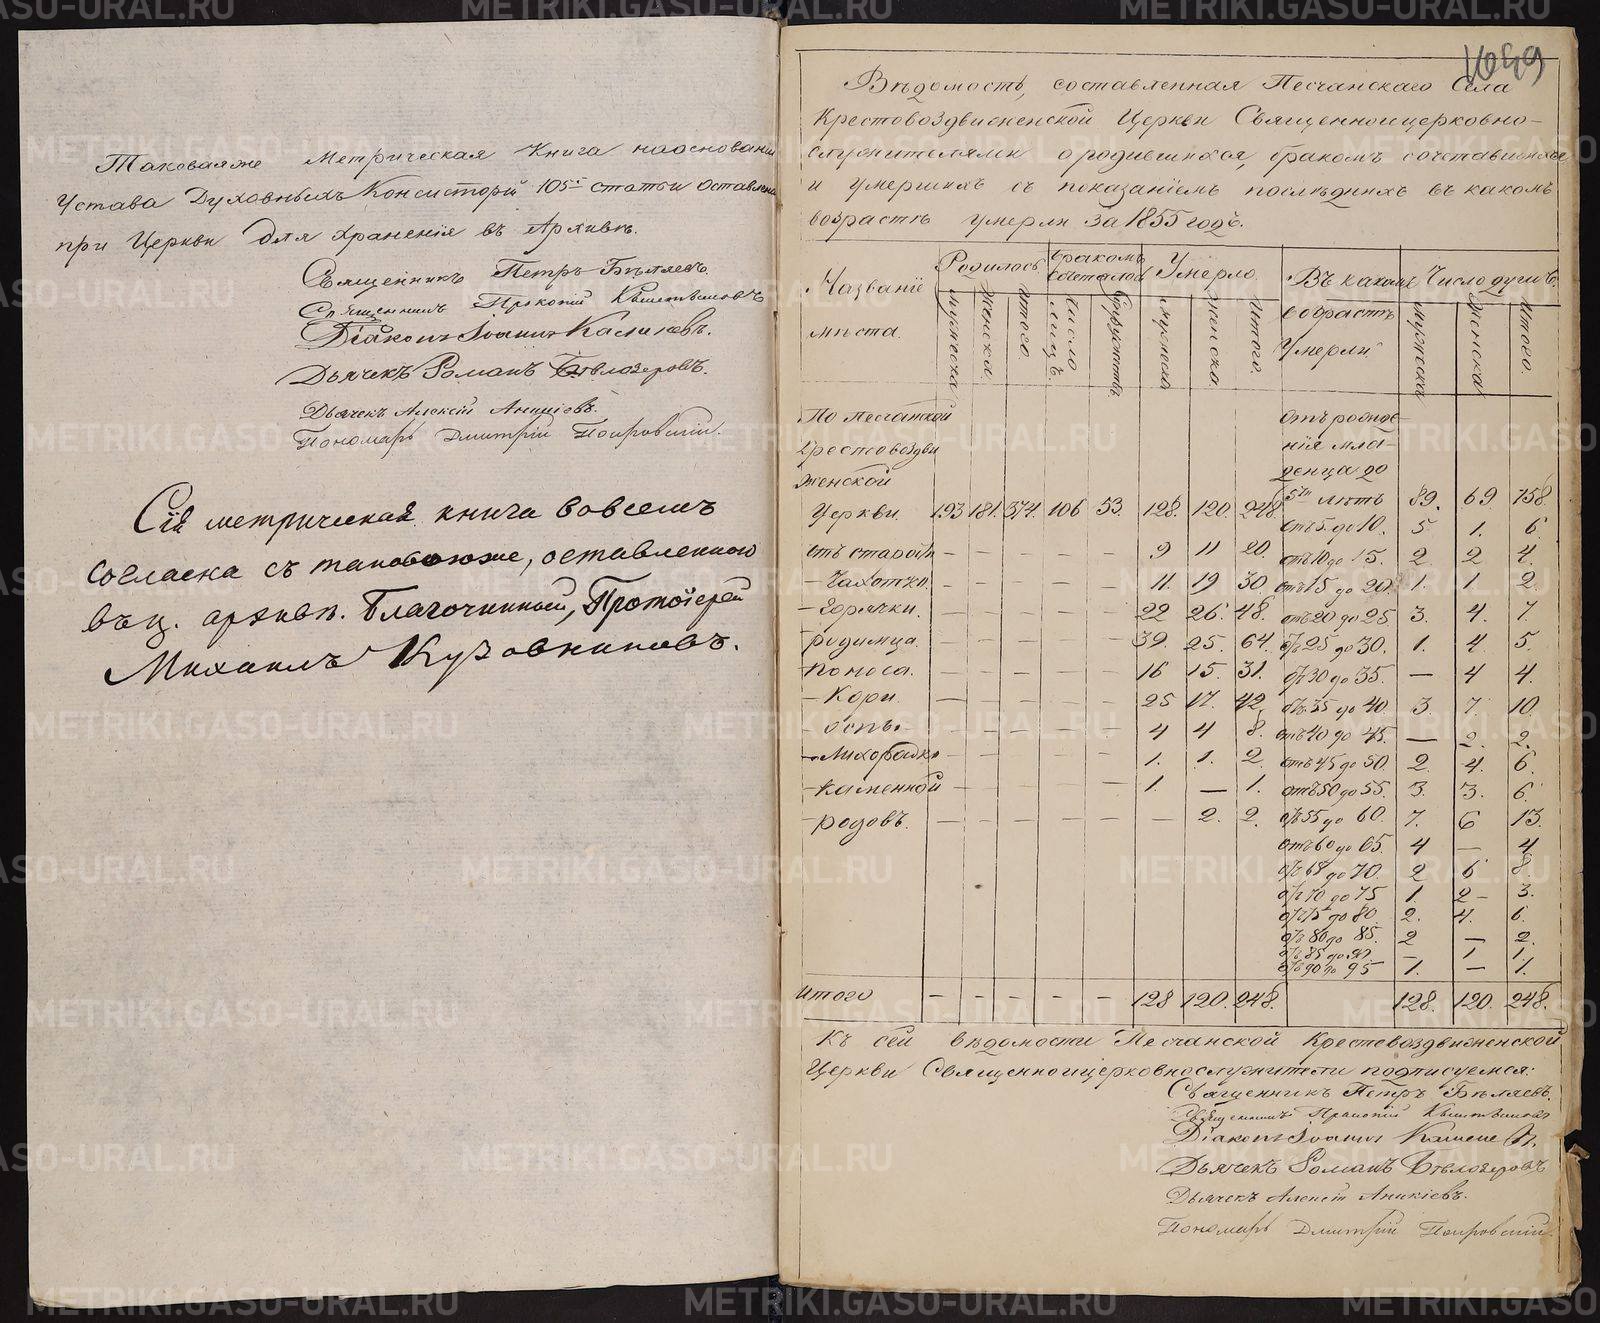 Таковаяже Метрическая Книга наосновании
Устава Духовныхъ Консисторій 105 статьи оставлена
при Церкви для храненія въ Архивѣ.
Священникъ Петръ Бѣляевъ.
Священникъ Прокопій
Діаконъ Іоаннъ
Дьячекъ Романъ Бѣлозеровъ.
Дьячекъ Алексій Аникіевъ.
Пономарь Дмитрій Покровскій.
Сія метрическая книга вовсемъ
согласна съ таковоюже, оставленною
въ ц. архивѣ. Благочинный, Протоіерей
Михаилъ Кузовниковъ.
1649
Вѣдомость, составленная Песчанскаго Села
Крестовоздвиженской Церкви Священноицерковно-
служителями о родившихся, бракомъ сочетавшихся
и умершихъ съ показаніемъ послѣднихъ въ какомъ
возрастѣ умерли за 1855 годъ.
Названіе мѣста.
Родилось
Мужеска
Женска
Итого.
Бракомъ
Число Лицъ.
Супружествъ
Умерло.
Мужеска
Женска
Итого.
Въ какомъ возрастѣ Умерли
Число душъ.
Мужеска
Женска
Итого.
По песчанской отъ рожде-
Крестовоздви нія мла-
женской денца до
Церкви. 193 181. 374. 106 53. 128. 120. 248 5ти лѣтъ 89. 69 158.
отъ 5 до 10. 5 1. 6.
отъ старости — — — — — 9 11 20. отъ 10 до 15. 2. 2 4.
— Чахотки. — — — — — 11. 19 30. отъ 15 до 20. 1. 1. 2.
— Горячки. — — — — — 22 26. 48. отъ 20 до 25 3. 4. 7.
— родимца. — — — — — 39. 25. 64. отъ 25 до 30. 1. 4 5.
поноса. — — — — — 16 15. 31. отъ 30 до 35. — 4 4.
— Кори — — — — — 25 17. 42. отъ 35 до 40 3. 7. 10
— оспы — — — — — 4 4 8. отъ 40 до 45. — 2. 2.
— Лихорадки — — — — — 1. 1. 2. отъ 45 до 50. 2. 4. 6.
— каменной — — — — — 1. — 1. отъ 50 до 55. 3. 3. 6.
— родовъ. — — — — — — 2. 2. отъ 55 до 60. 7. 6 13.
отъ 60 до 65. 4 — 4
до 70. 2 6 8.
отъ 70 до 75 1. 2 — 3.
отъ 75 до 80. 2. 4. 6.
отъ 80 до 85. 2 — 2.
отъ 85 до 90. — 1 1.
отъ 90 до 95 1. — 1.
Итого — — — — — 128 120. 248. 128. 120. 248.
Къ сей вѣдомости Песчанской Крестовоздвиженской
Церкви Священноицерковнослужители подписуемся:
Священникъ Петръ Бѣляевъ.
Священникъ Прокопій
Діаконъ Іоаннъ
Дьячекъ Романъ Бѣлозеровъ
Дьячекъ Алексій Аникіевъ.
Пономарь Дмитрій Покровскій.
METRIKI.GASO-URAL.RU